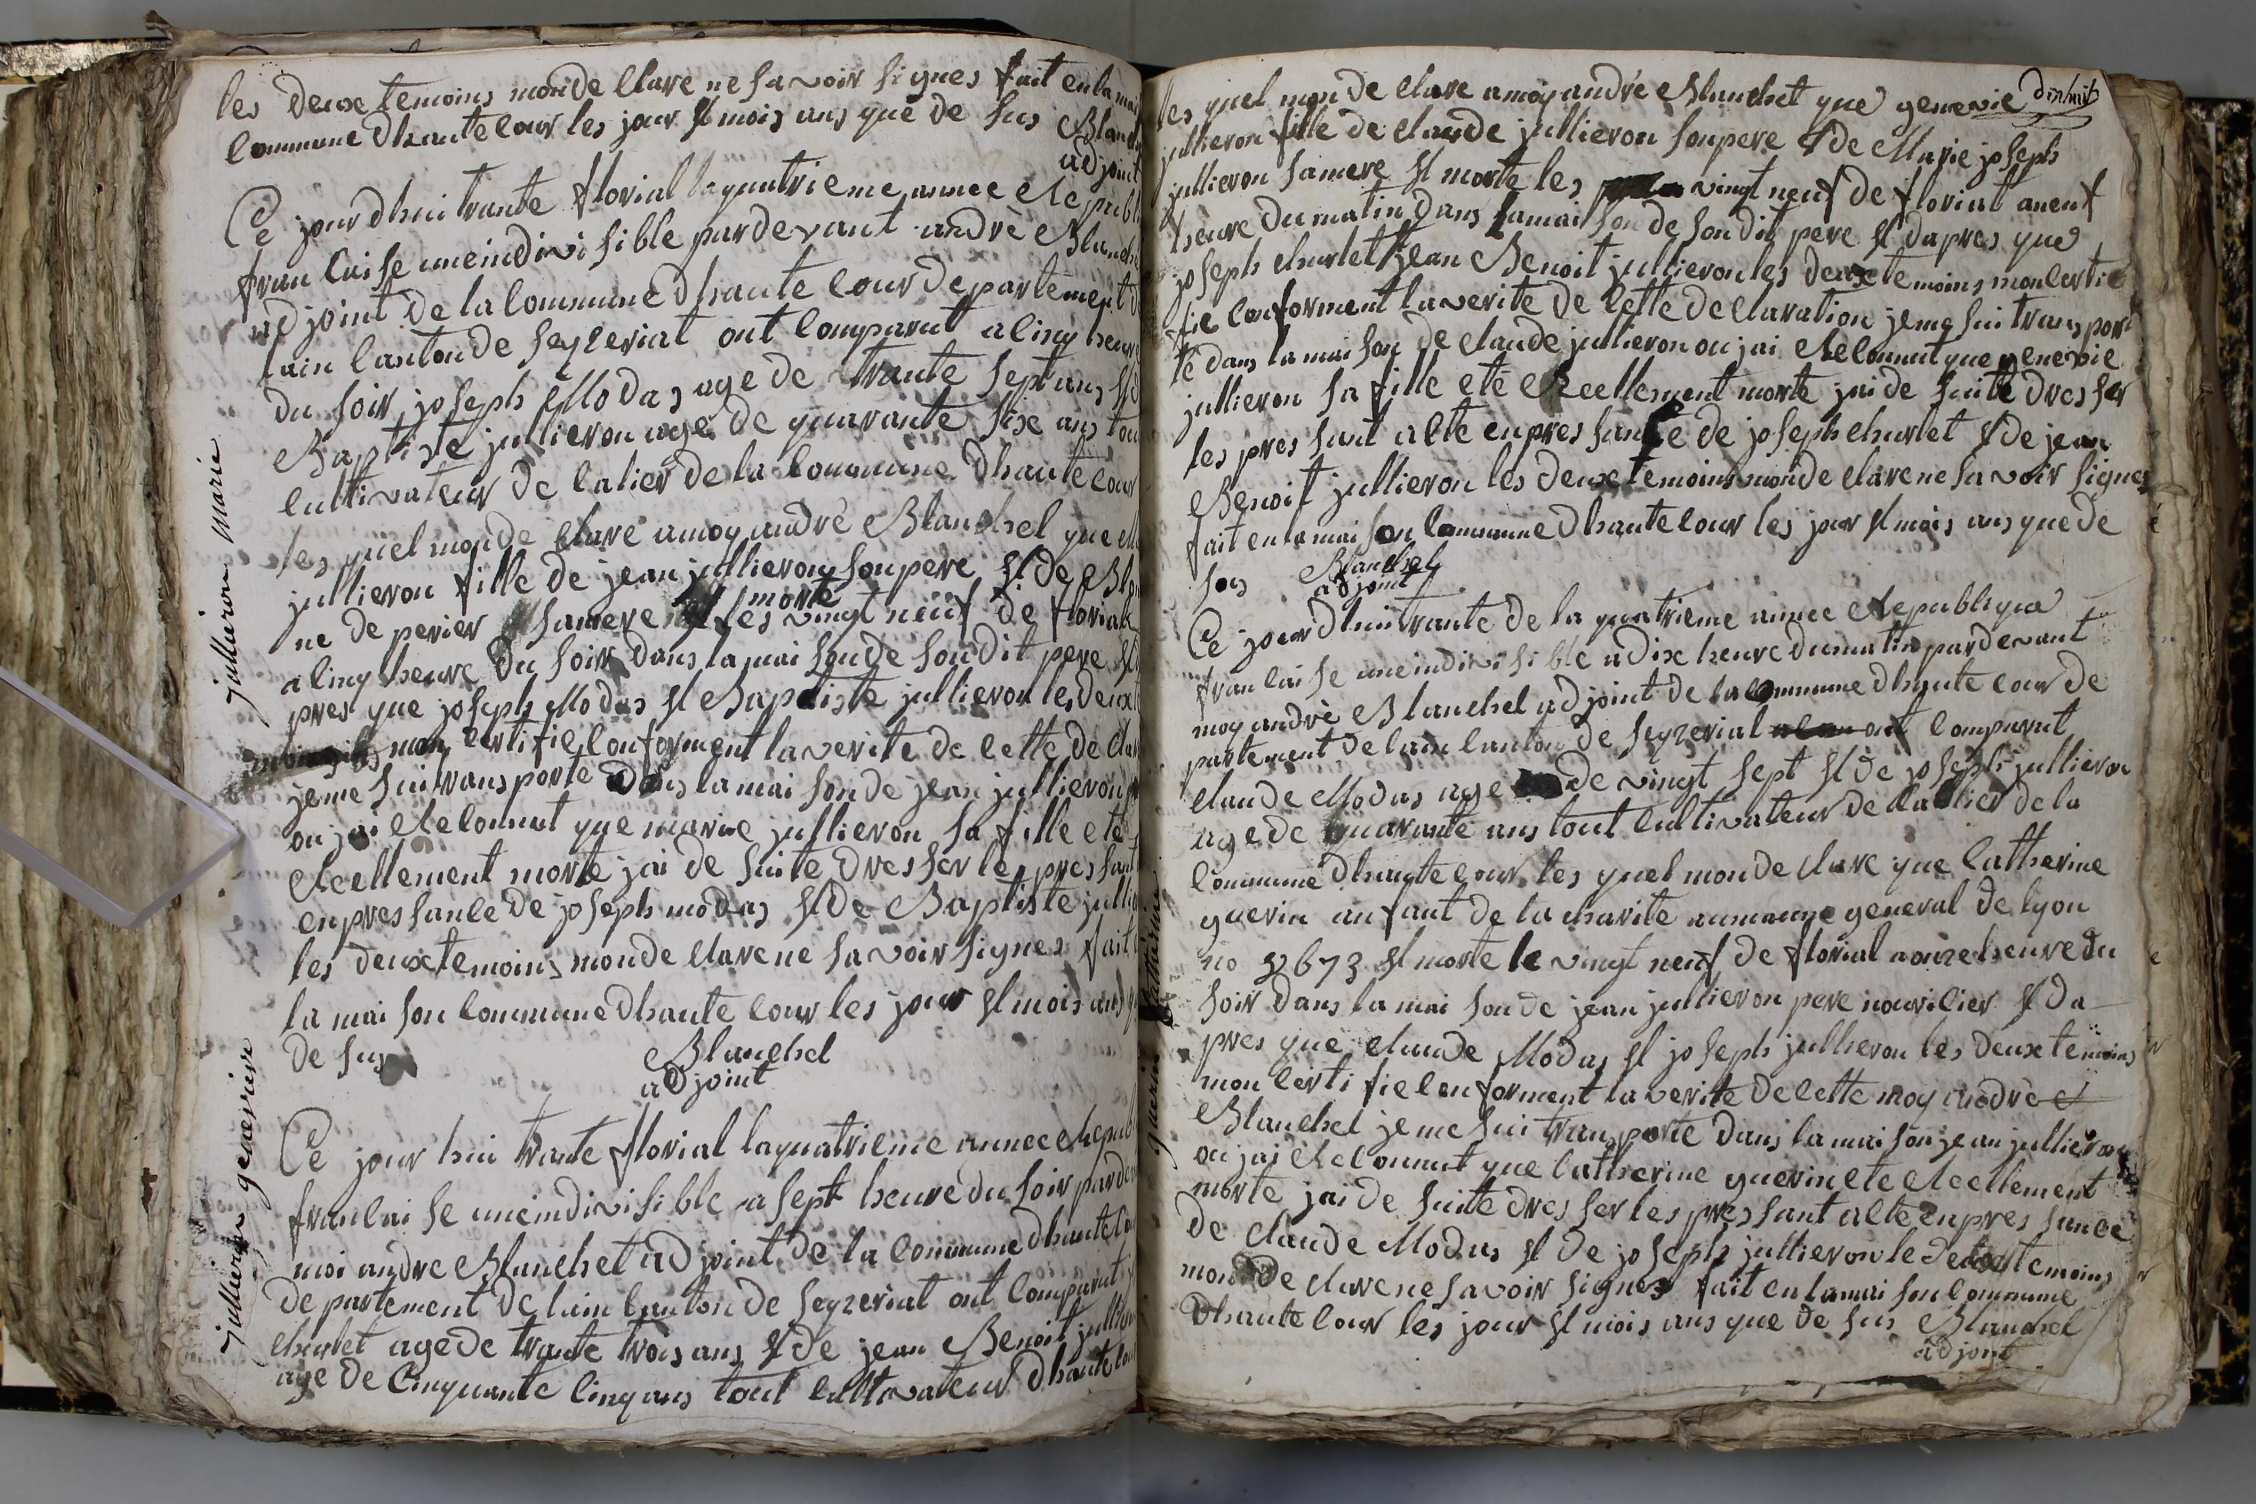 les deuxe temoins monde Clare ne savoir signes fait en la mai
Commune dhautecour les jour st mois ans que de sus Blanch
adjoint
Ce jour dhui trante florial la quatrieme annee Republ
francaise une indivisible pardevant andrè Blanche
adjoint de la Commune dhaute cour departement d
lain Canton de seyzeriat ont comparut a cinq heure
du soir joseph Modas age de trante sept ans st d
Baptiste jullieron age de quarante sixe ans tou
Cultivateur de Calier de la Commune dhaute cour
les quel monde Clare a moy andrè Blanchel que M
jullieron fille de jean jullieron son pere st de Blan
ne de perier sa mere st morte les vingt neuf de florial
a cinq heure du soir dans la mai son de son dit pere st d
pres que joseph Modas st Baptiste jullieron les deuxe
mon certifie Conforment la verite de cette de Clar
je me sui transporte dans la mai son de jean jullieron
ou jai Reconnut que marie jullieron sa fille ete
Reellement morte jai de suite dresser le pressant
en pressance de joseph modas st de Baptiste jullie
les deuxe temoins monde Clare ne savoir signes fait
la mai son Commune dhaute cour les jour st mois ans q
de sus
Blanchel
adjoint
jullieron marie
Ce jour hui trante florial la quatrieme annee Republ
francai se une indivisible a sept heure du soir pardev
moi andre Blanchel adjoint de la Commune dhaute Co
departement de lain Canton de seyzeriat ont comparut j
churlet age de trante trois ans st de jean Benoit jullie
age de Cinquante Cinq ans tout Cultivateur dhaute Cou
jullieron genevieve
dixhuit
les quel mon de Clare a moy andrè Blanchel que genevie
jullieron fille de claude jullieron son pere st de Marie joseph
jullieron sa mere st morte les vingt neuf de florial a neuf
heure du matin dans la mai son de son dit pere st dapres que
joseph churlet st jean Benoit jullieron les deuxe temoins mon certi
fie Conforment la verite de cette de Claration je me sui transpor
te dans la mai son de claude jullieron ou jai Reconnut que genevie
jullieron sa fille ete Reellement morte jai de suite dres ser
les pressant acte en pres sance de joseph churlet st de jean
Benoit jullieron les deuxe temoins monde Clare ne savoir signes
fait en la mai son Commune dhaute cour les jour st mois ans que de
sus Blanchel
adjoint
Ce jour dhui trante de la quatrieme annee Republique
francai se une indivi si ble a dixe heure du matin par devant
moy andrè Blanchel adjoint de la Commune dhaute cour de
partement de lain Canton de seyzerial ont comparut
claude Modas age de vingt sept st de joseph jullieron
age de quarante ans tout Cultivateur de Callier de la
Commune dhaute cour les quel monde Clare que Catherine
guerin anfant de la charite aumaune general de lyon
no 32673 st morte le vingt neuf de florial a onze heure du
soir dans la mai son de jean jullieron pere nouricier st da
pres que claude Modas st joseph jullieron les deuxe temoins
mon certi fie Conforment la verite de cette moy andrè
Blanchel je me sui transporte dans la mai son jean jullieron
ou jai Reconnut que Catherine guerin ete Reellement
morte jai de suite dres ser les pressant acte en pres sance
de claude Modas st de joseph jullieron le deuxe temoins
monde Clare ne savoir signes fait en la mai son Commune
dhaute cour les jour st mois ans que de sus Blanchel
adjoint
guerin Catharine